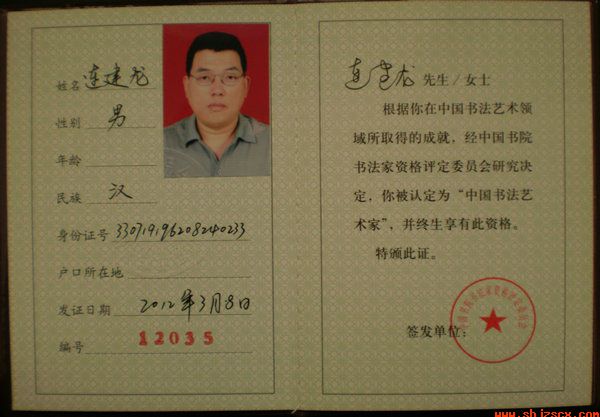 姓名 连建龙
性别 男
年龄
民族 汉
身份证号 330719196208240233
户口所在地
发证日期 2012年3月8日
编号 12035
连建龙 先生/女士
根据你在中国书法艺术领
域所取得的成就，经中国书院
书法家资格评定委员会研究决
定，你被认定为“中国书法艺
术家”，并终生享有此资格。
特颁此证。
签发单位：
中国书院书法家资格评定委员会
www.shjzscx.com